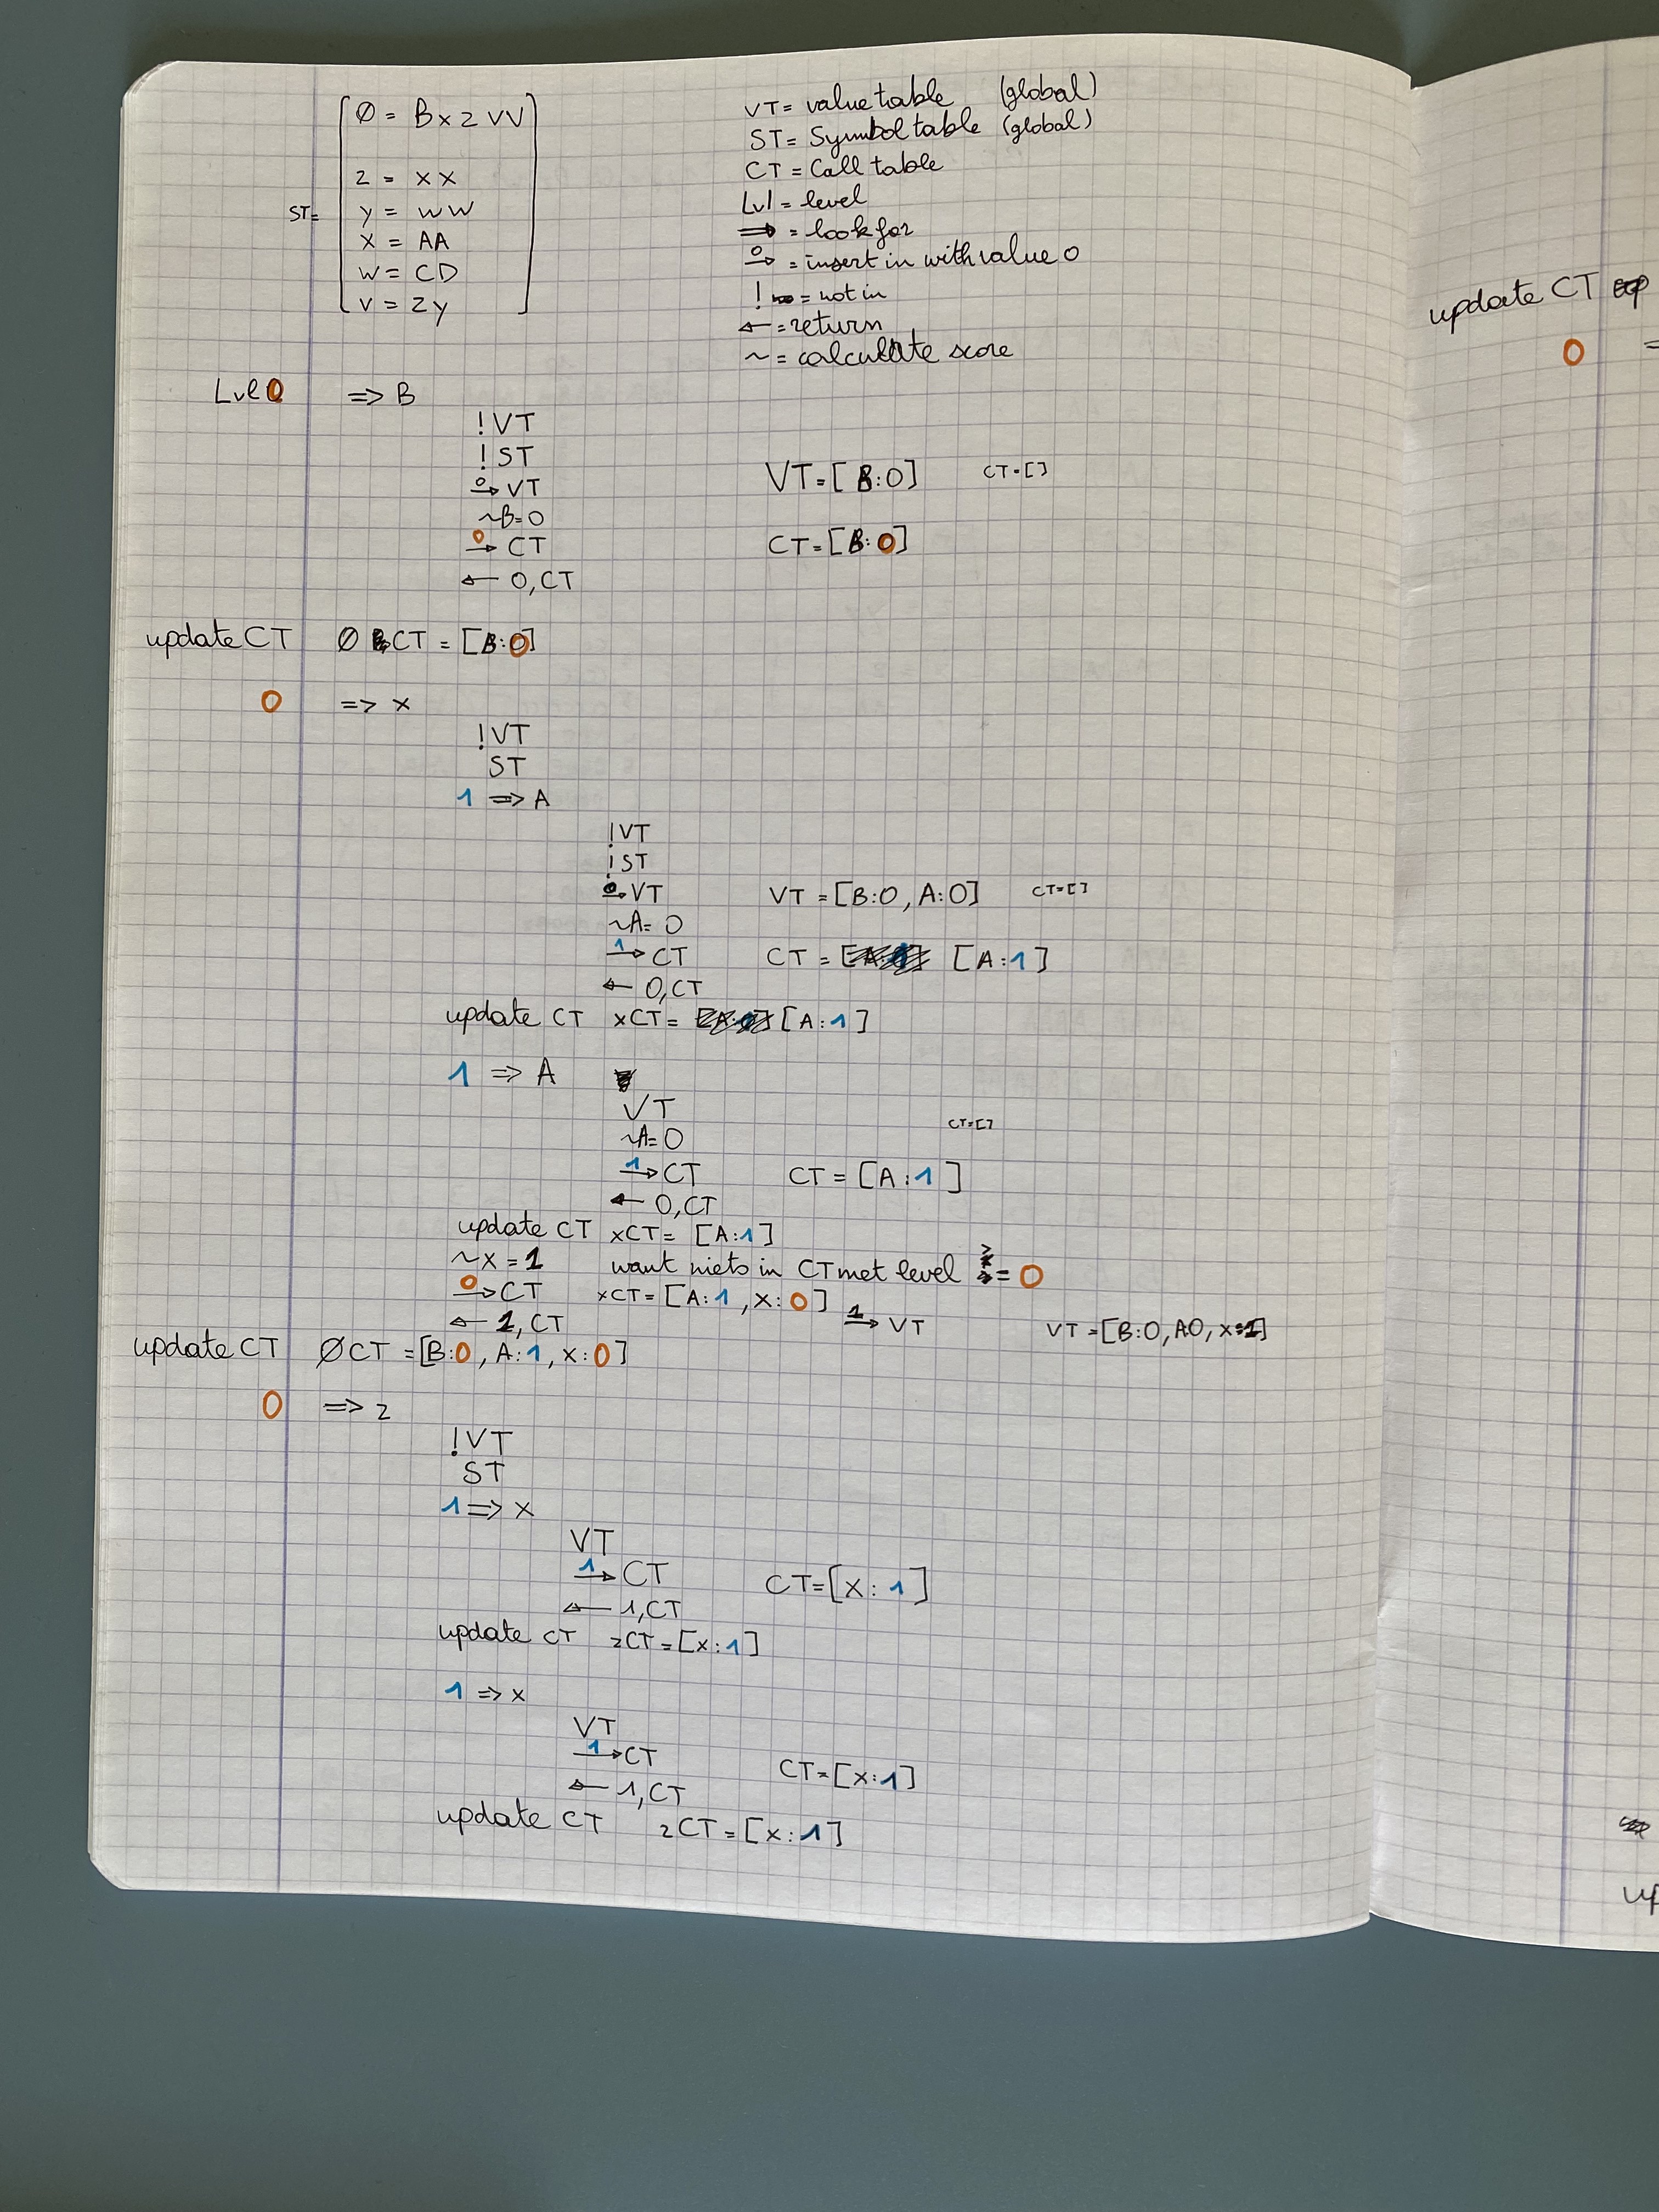 ST= [ Ø = B x z V V
z = x x
y = w w
x = AA
w = CD
v = z y ]
VT = value table (global)
ST = Symbol table (global)
CT = Call table
Lvl = level
=> = look for
0→ = insert in with value 0
! = not in
← = return
~ = calculate score
Lvl 0 => B
!VT
!ST
0→ VT VT=[B:0] CT=[]
~B=0
0→ CT CT=[B:0]
← 0,CT
update CT Ø CT = [B:0]
0 => x
!VT
ST
1 => A
!VT
!ST
0→ VT VT=[B:0, A:0] CT=[]
~A=0
1→ CT CT = [A:1]
← 0,CT
update CT xCT= [A:1]
1 => A
VT
~A=0 CT=[]
1→ CT CT = [A:1]
← 0,CT
update CT xCT= [A:1]
~x=1 want niets in CT met level >= 0
0→ CT xCT=[A:1, x:0] 1→ VT
← 1,CT VT=[B:0, A0, x:1]
update CT ØCT =[B:0, A:1, x:0]
0 => z
!VT
ST
1 => x
VT
1→ CT CT=[x:1]
← 1,CT
update CT zCT=[x:1]
1 => x
VT
1→ CT CT=[x:1]
← 1,CT
update CT zCT=[x:1]
update CT
0